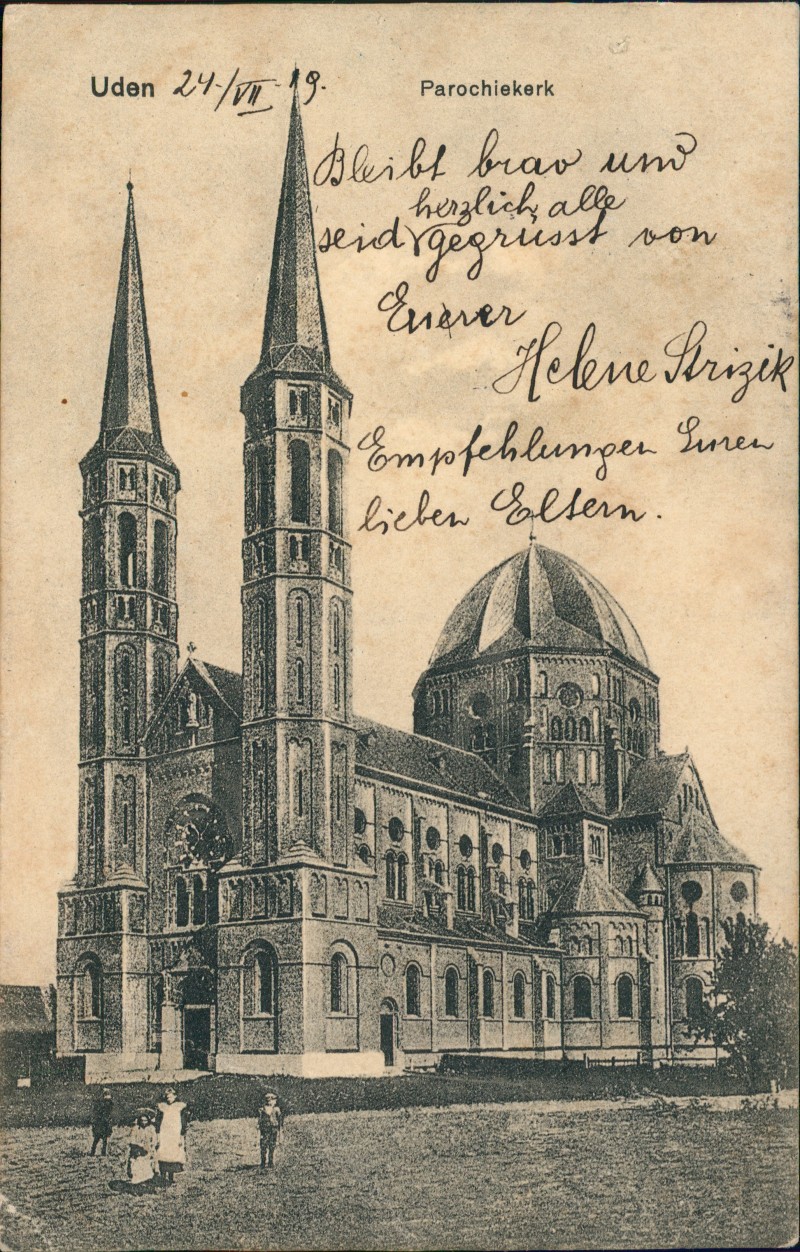 Uden 24./VII 19.
Parochiekerk
Bleibt brav und
herzlich alle
seid gegrüsst von
Euerer
Helene Strizik
Empfehlungen Euren
lieben Eltern.